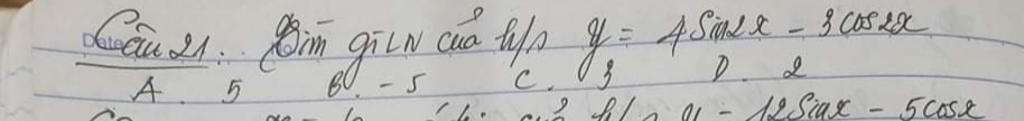 Date
Câu 21: Tìm gtLN của h/s y = 4sin2x - 3cos2x
A. 5 B. -5 C. 3 D. 2
của h/s y = 12sinx - 5cosx